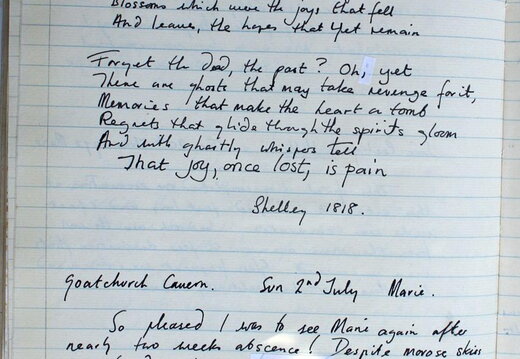 Blossoms which were the joys that fell
And leaves, the hopes that yet remain
Forget the dead, the past? Oh, yet
There are ghosts that may take revenge for it,
Memories that make the heart a tomb
Regrets that glide through the spirits gloom
And with ghastly whispers tell
That joy, once lost, is pain
Shelley 1818.
Goatchurch Cavern. Sun 2nd July Marie.
So pleased I was to see Marie again after
nearly two weeks abscence! Despite morose skies